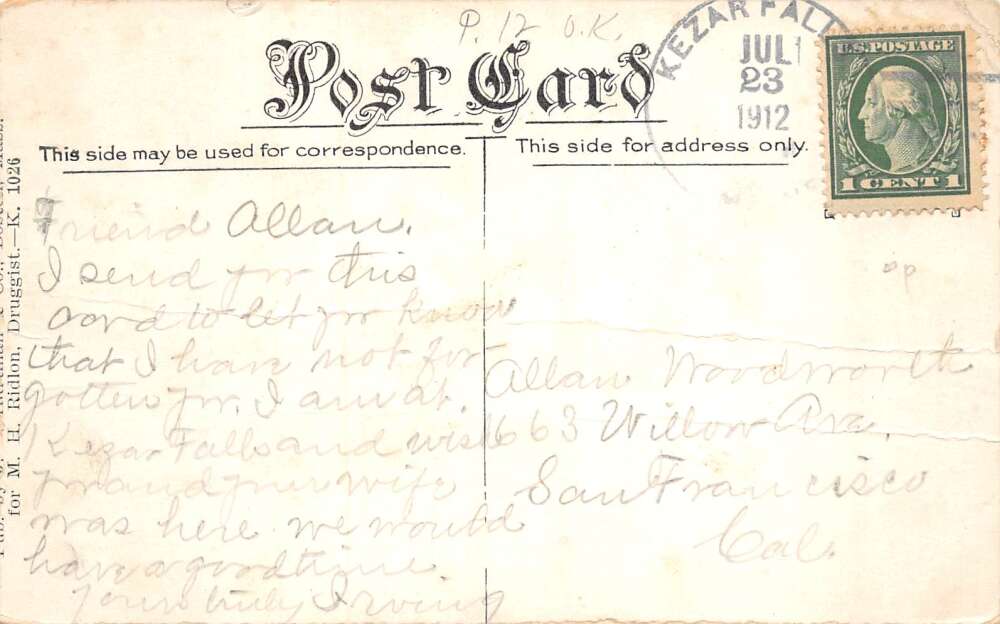 P. 12 O.K.
Post Card
KEZAR FALL
JUL
23
1912
U.S. POSTAGE
1 CENT 1
This side may be used for correspondence.
This side for address only.
for M. H. Ridlon, Druggist.—K. 1026
Friend Allan.
I send yor this
card to let yor know
that I have not for
gotten yor. I am at.
Kezar Falls and wish
yor and yuer wife
was here we would
have a good time.
Yours truly Irving
Allan Woodworth
663 Willow Ava.
San Francisco
Cal.
op